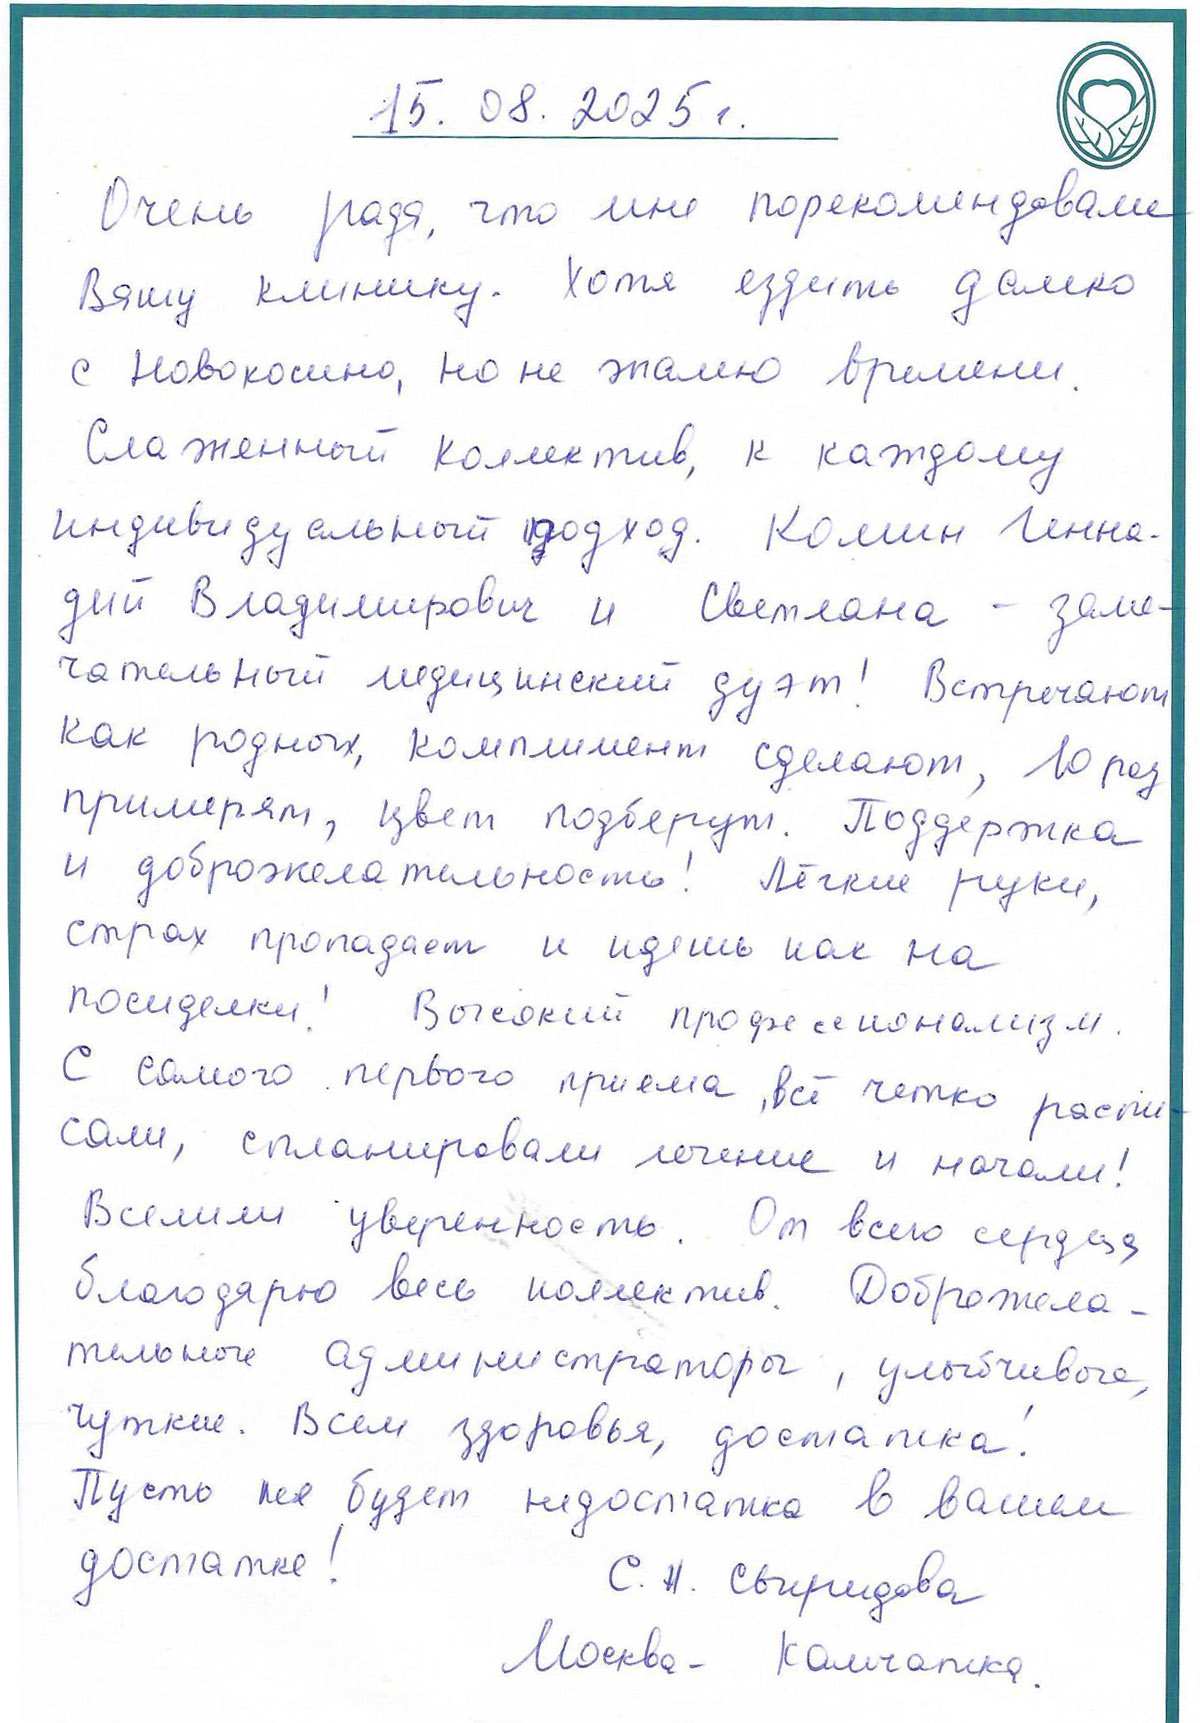 15. 08. 2025 г.
Очень рада, что мне порекомендовали
Вашу клинику. Хотя ездить далеко
с Новокосино, но не жалею времени.
Слаженный коллектив, к каждому
индивидуальный подход. Комин Генна-
дий Владимирович и Светлана - заме-
чательный медицинский дуэт! Встречают
как родных, комплимент сделают, 10 раз
примерят, цвет подберут. Поддержка
и доброжелательность! Лёгкие руки,
страх пропадает и идешь как на
посиделки! Высокий профессионализм.
С самого первого приема, всё четко распи-
сали, спланировали лечение и начали!
Вселили уверенность. От всего сердца
благодарю весь коллектив. Доброжела-
тельные администраторы, улыбчивые,
чуткие. Всем здоровья, достатка!
Пусть не будет недостатка в вашем
достатке!
С. Н.
Москва - Камчатка.